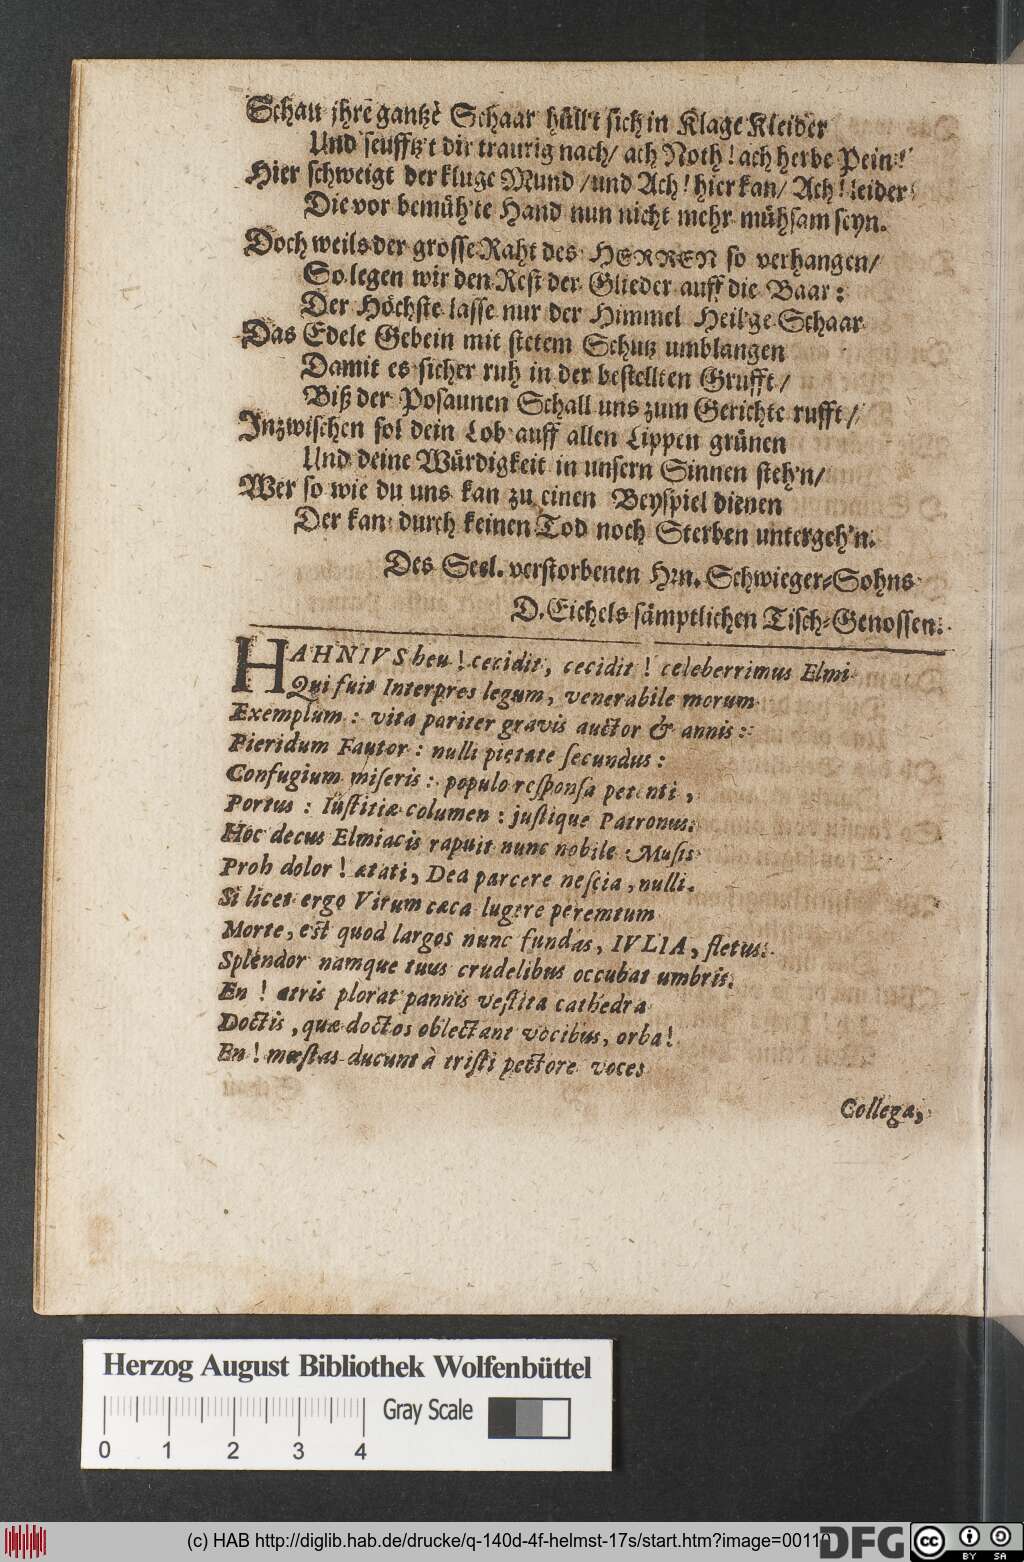 Schau jhre gantze Schaar hüll't sich in Klage Kleider
Und seufftz't dir traurig nach/ ach Noth! ach herbe Pein!
Hier schweigt der kluge Mund / und Ach! hier kan/ Ach! leider!
Die vor bemüh'te Hand nun nicht mehr mühsam seyn.
Doch weils der grosse Raht des HERREN so verhangen/
So legen wir den Rest der Glieder auff die Baar:
Der Höchste lasse nur der Himmel Heil'ge Schaar
Das Edele Gebein mit stetem Schutz umblangen
Damit es sicher ruh in der bestellten Grufft/
Biß der Posaunen Schall uns zum Gerichte rufft/
Inzwischen sol dein Lob auff allen Lippen grünen
Und deine Würdigkeit in unsern Sinnen steh'n/
Wer so wie du uns kan zu einen Beyspiel dienen
Der kan durch keinen Tod noch Sterben untergeh'n.
Des Seel. verstorbenen Hrn. Schwieger-Sohns
D. Eichels sämptlichen Tisch-Genossen.
HAHNIVS heu! cecidit, cecidit! celeberrimus Elmi
Qui fuit Interpres legum, venerabile morum
Exemplum: vita pariter gravis auctor & annis:
Pieridum Fautor: nulli pietate secundus:
Confugium miseris: populo responsa petenti,
Portus: Iustitiæ columen: justique Patronus.
Hoc decus Elmiacis rapuit nunc nobile Musis
Proh dolor! ætati, Dea parcere nescia, nulli.
Si licet ergo Virum cæca lugere peremtum
Morte, est quod largos nunc fundas, IVLIA, fletus.
Splendor namque tuus crudelibus occubat umbris.
En! atris plorat pannis vestita cathedra
Doctis, quæ doctos oblectant vocibus, orba!
En! mœstas ducunt à tristi pectore voces
Collega,
Herzog August Bibliothek Wolfenbüttel
Gray Scale
0 1 2 3 4
(c) HAB http://diglib.hab.de/drucke/q-140d-4f-helmst-17s/start.htm?image=00110
DFG
cc BY SA